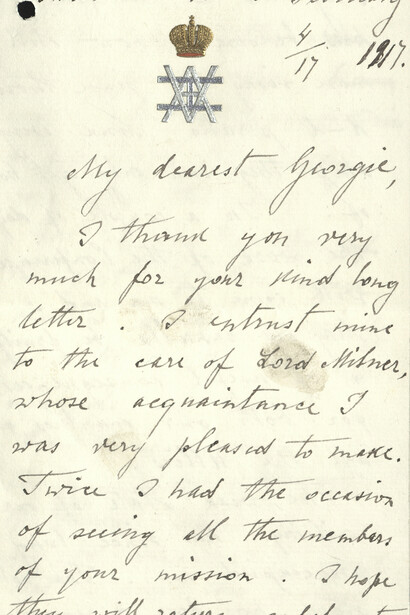 4/17 1917.
My dearest Georgie,
I thank you very
much for your kind long
letter. I entrust mine
to the care of Lord Milner,
whose acquaintance I
was very pleased to make.
Twice I had the occasion
of seeing all the members
of your mission. I hope
they will return